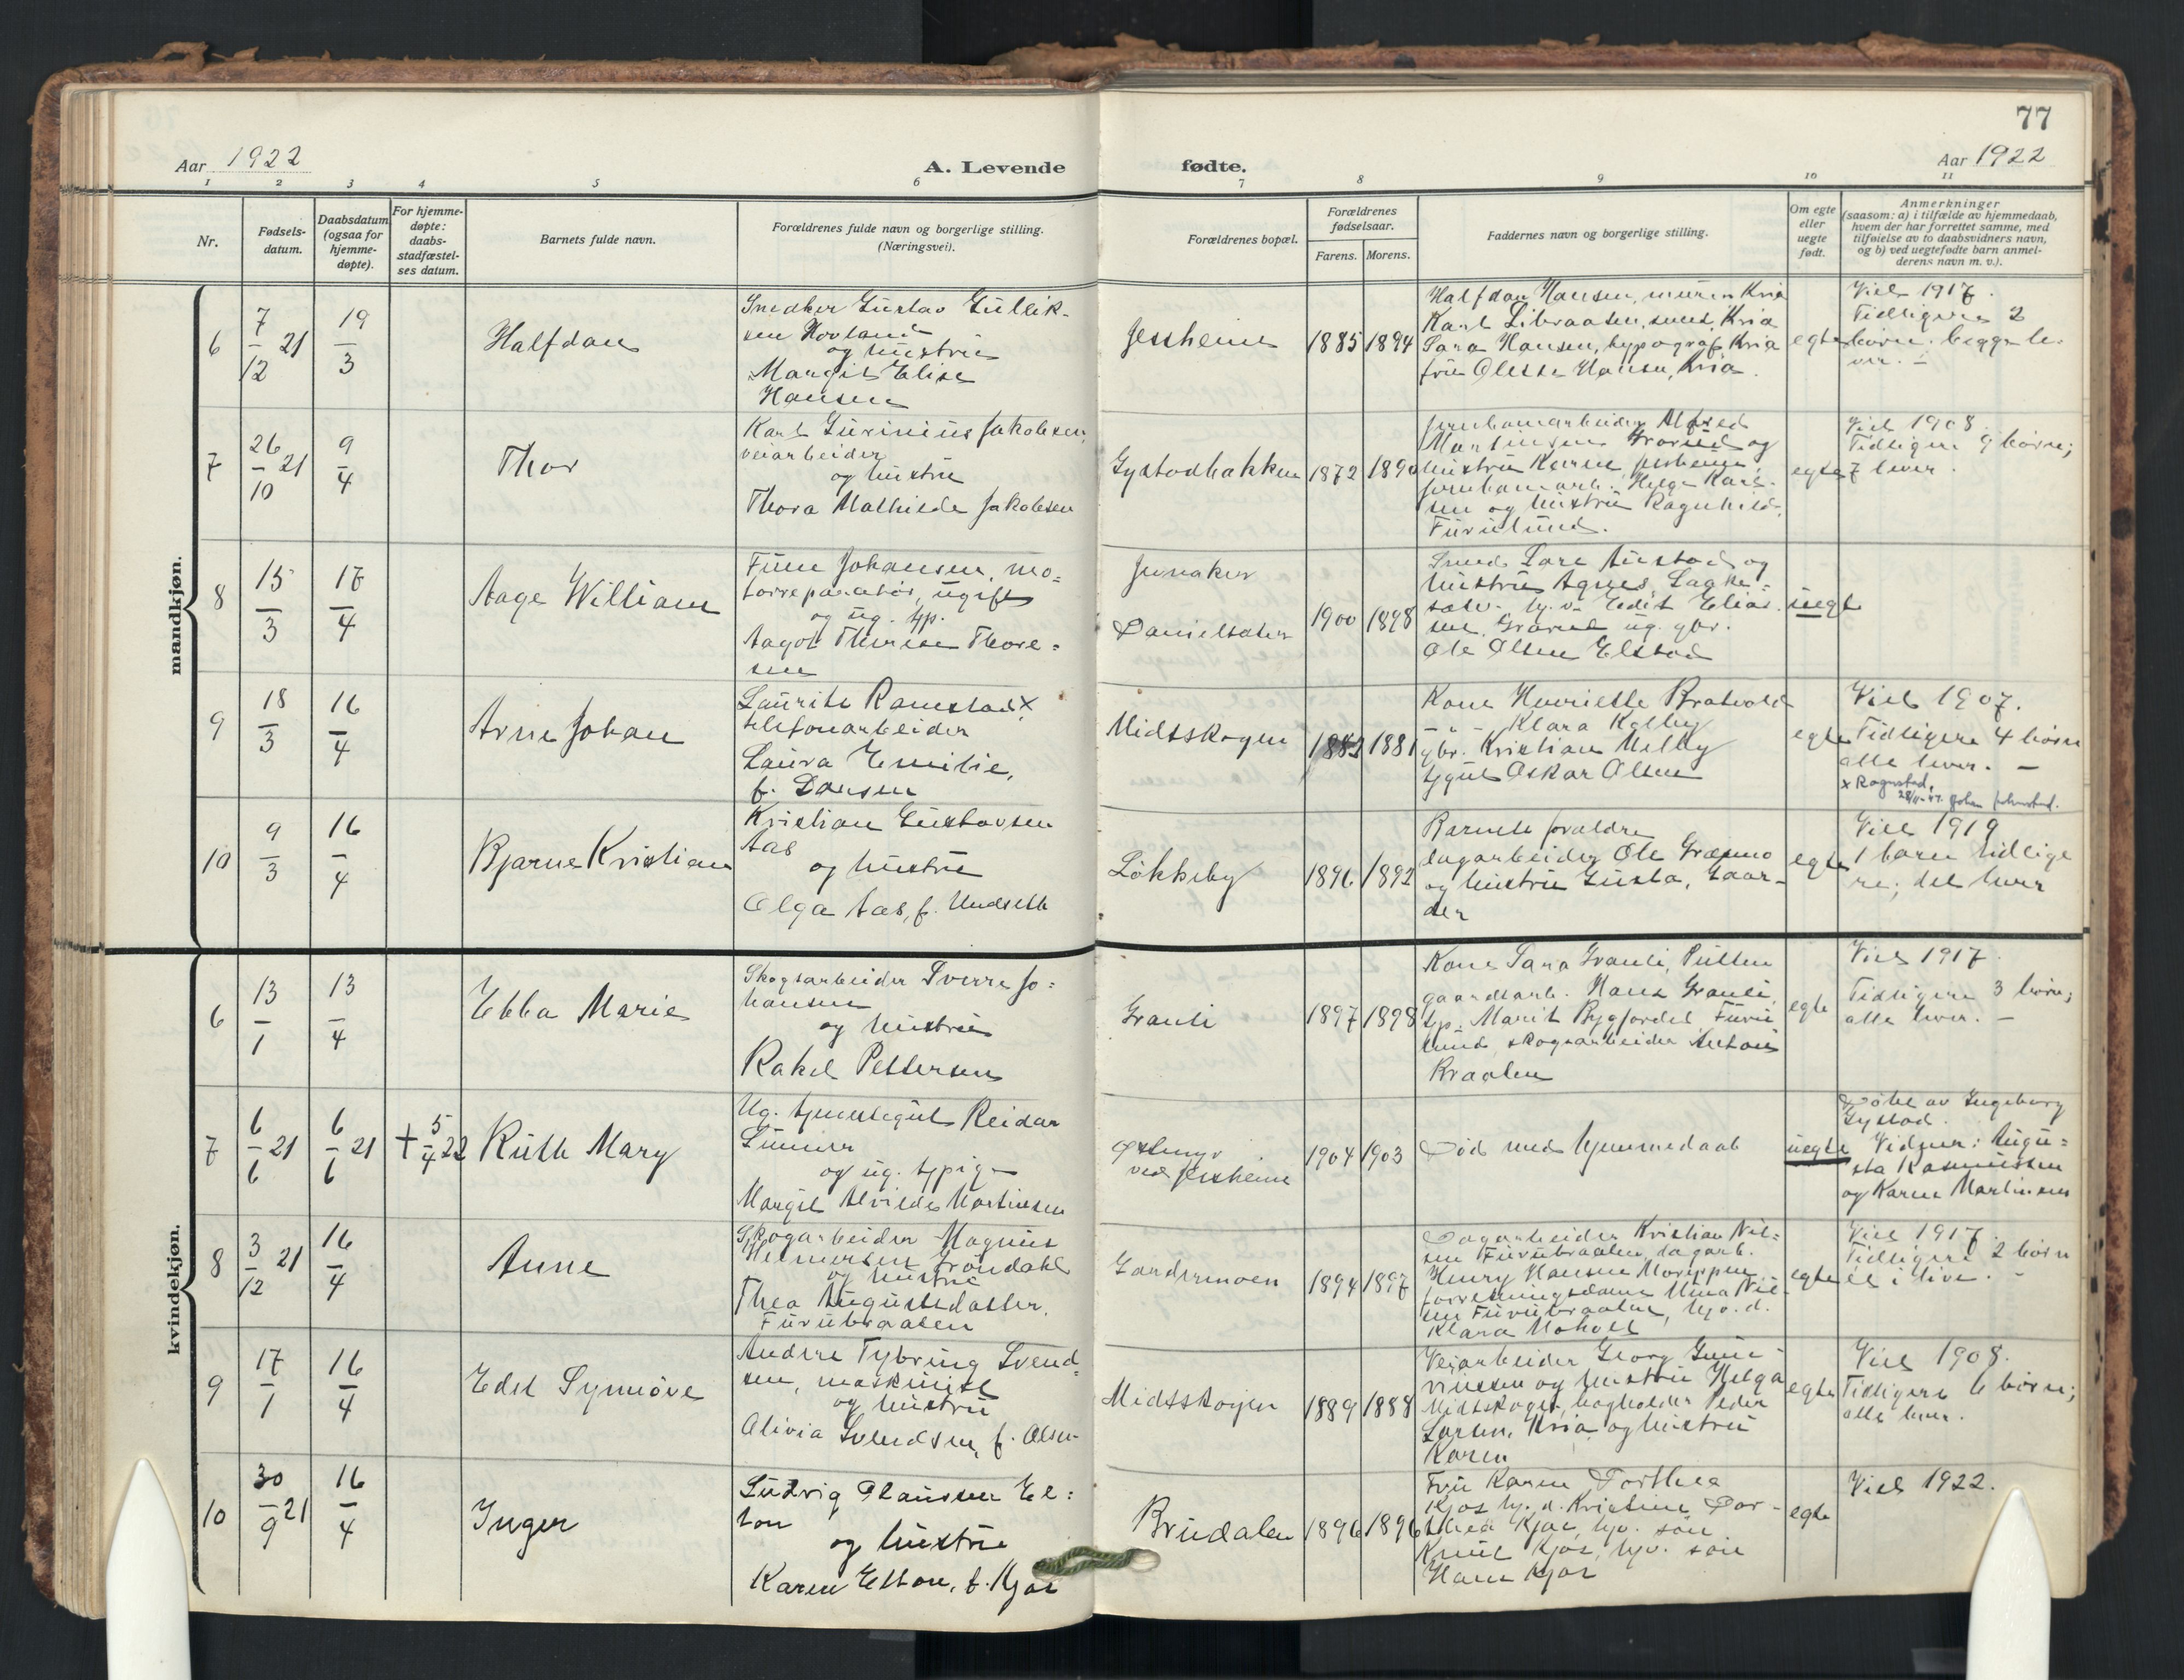 77
Aar 1922
A. Levende
fødte.
Aar 1922
1 2 3 4 5 6 7 8 9 10 11
Nr.
Fødsels-
datum.
Daabsdatum
(ogsaa for
hjemme-
døpte).
For hjemme-
døpte:
daabs-
stadfæstel-
ses datum.
Barnets fulde navn.
Forældrenes fulde navn og borgerlige stilling.
(Næringsvei).
Forældrenes bopæl.
Forældrenes
fødselsaar.
Farens. Morens.
Faddernes navn og borgerlige stilling.
Om egte
eller
uegte
født.
Anmerkninger
(saasom: a) i tilfælde av hjemmedaab,
hvem der har forrettet samme, med
tilføielse av to daabsvidners navn,
og b) ved uegtefødte barn anmel-
derens navn m. v.).
mandkjøn.
6
7/12 21
19/3
Halfdan
Snedker Gustav Gullik-
sen Hovland
og hustru
Margit Elise
Hansen
Jessheim
1885 1894
Halfdan Hansen, murer Kria
Karl Libraaten, smed, Kria
Sara Hansen, typograf Kria
fru Olette Hansen, Kria.
egte
Viet 1917.
Tidligere 2
børn. begge le-
ver. –
7
26/10 21
9/4
Thor
Karl Gurinius Jakobsen,
veiarbeider
og hustru
Thora Mathilde Jakobsen
Gystadbakken
1872 1890
jernbanarbeider Alfred
Martinsen Grorud og
hustru Karen, Jessheim,
jernbanarb. Helge Karl-
sen og hustru Ragnhild,
Furulund.
egte
Viet 1908.
Tidligere 9 børn;
7 lever.
8
15/3
17/4
Aage William
Finn Johansen, mo=
torreparatør, ugift
og ug. tjp.
Aagot Therese Thore=
sen
Jernaker
Danielsæter
1900 1898
Smed Lars Austad og
hustru Agnes,
Edit Elias-
sen, ug. gbr.
Ole Olsen Elstad
uegte
9
18/3
16/4
Arne Johan
Laurits Ramstad x,
telefonarbeider
Laura Emilie,
f. Larsen
Midtskogen
1882 1881
Kone Henriette Bratvold
– " – Klara Kolby
gbr. Kristian Melby
tjgut Oskar Olsen
egte
Viet 1907.
Tidligere 4 børn
alle lever. –
x Rognstad,
10
9/3
16/4
Bjarne Kristian
Kristian Gustavsen
Aas
og hustru
Olga Aas, f. Undseth
Løkkeby
1896 1892
Barnets forældre
dagarbeider Ole Græsmo
og hustru Gusta, Gaar-
der
egte
Viet 1919
1 barn tidlige
re; det lever
kvindekjøn.
6
13/1
13/4
Ebba Marie
Skogsarbeider Sverre Jo=
hansen
og hustru
Rakel Pettersen
Granli
1897 1898
Kone Sara Granli, Putten
gaardsarb. Hans Granli,
tjp. Marit Bygfordet Furu
lund, skogsarbeider Anton
Braaten
egte
Viet 1917.
Tidligere 3 børn;
alle lever. –
7
6/6 21
6/6 21
+ 5/4 22
Ruth Mary
Ug. tjenestegut Reidar
Lunner
og ug. tjpige
Margit Alvilde Martinsen
Østmyr
ved Jessheim
1904 1903
Død med hjemmedaab
uegte
Døbt av Ingeborg
Gystad.
Vidner: Augu=
sta Rasmussen
og Karen Martinsen
8
3/12 21
16/4
Anne
Skogarbeider Magnus
Helmersen Grøndahl
og hustru
Thea Augustsdatter,
Furubraaten
Gardermoen
1894 1897
Dagarbeider Kristian Niel=
sen Furubraaten, dagarb.
Henry Hansen Moreppen
forretningsdame Anna Niel-
sen Furubraaten, hjv. d.
Klara Moholt
egte
Viet 1917.
Tidligere 2 børn
ét i live. –
9
17/1
16/4
Edel Synnøve
Andere Tybring Svend=
sen, maskinist
og hustru
Olivia Svendsen, f. Olsen
Midtskogen
1889 1888
Veiarbeider Georg Gun-
vinssen og hustru Helga
Midtskogen, bogholder Peder
Larsen, Kria og hustru
Karen
egte
Viet 1908.
Tidligere 6 børn;
alle lever.
10
30/9 21
16/4
Inger
Ludvig Clausen El=
ton
og hustru
Karen Elton, f. Kjos
Brudalen
1896 1896
Fru Karen Dorthea
Kjos hj. d. Kristine Dor-
thea Kjos, hjv. søn
Knut Kjos, hjv. søn
Hans Kjos
egte
Viet 1922.